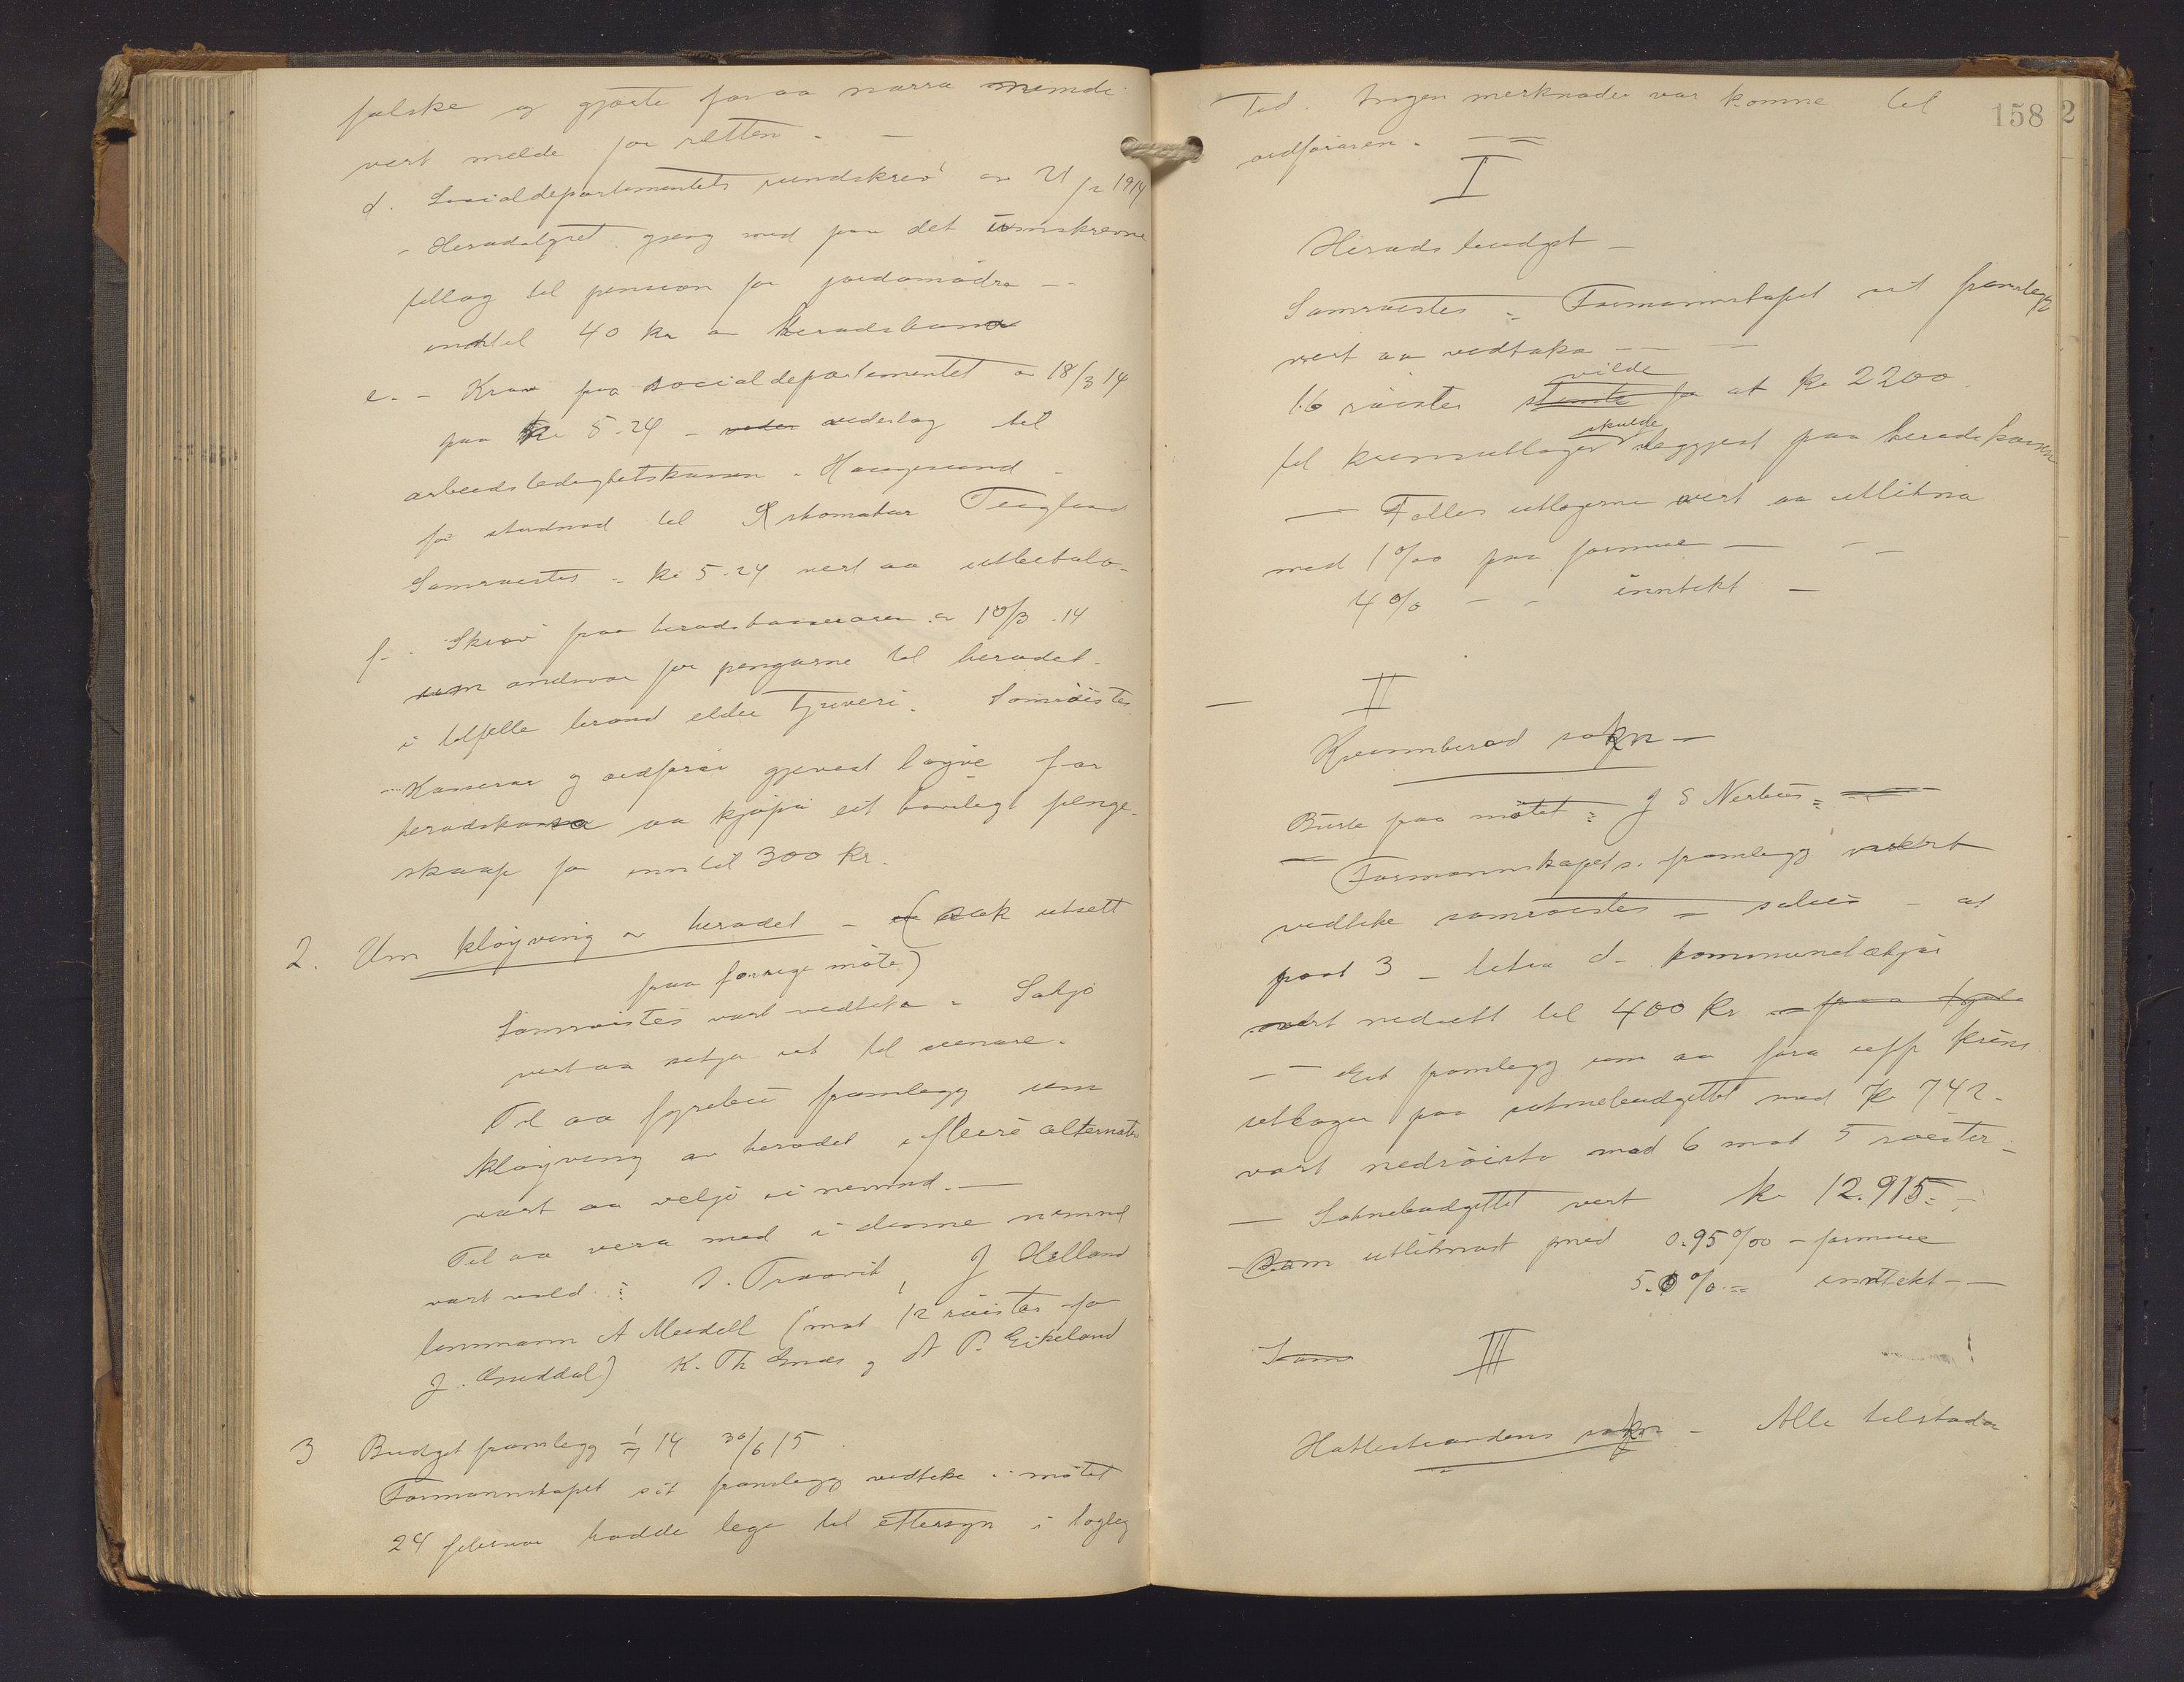 falske og gjorde for aa narra nemdi
vert melde for retten. –
d. Socialdepartementets rundskriv av 21/2 1914
– Heradstyret gjeng med paa det umskrevne
tillag til pension for jordmødra –
inntil 40 kr av heradskassa
e. – Krav fraa Socialdepartementet av 18/3 14
paa kr 5.24 – vederlag til
arbeidsledighetskassen. Haugesund –
for studnad til Teigland
Samrøistes – kr 5.24 vert aa utbetala.
f. – Skriv fraa heradskasseraren av 10/3.14
um andsvar for pengarne til heradet
i tilfelle brand elder tjuveri. Samrøistes
Kasserar og ordførar gjevest løyve for
heradskassa aa kjøpa eit høvelegt penge-
skaap for inntil 300 kr.
2. Um kløyving av heradet – (sak utsett
fraa forrige møte)
Samrøistes vart vedteke – Sakji
vert aa setja ut til seenare.
Til aa fyrebu framlegg um
kløyving av heradet i fleire alternativ
vart aa velja ei nemnd. –
Til aa vera med i denne nemnd
vart vald: S. Traavik, J Helland
lensmann A Meidell (mot 12 røister for
J. Guddal) K. Th Enes og A P. Eikeland
3 Budget framlegg 1/7 14 30/6 15
Formannskapet sit framlegg vedteke i møtet
24 februar hadde lege til ettersyn i lagleg
Tid. Ingen merknader var komne til
ordføraren. –
158 2
I
Herads budget –
Samrøistes – Formannskapet sit framlegg
vert aa vedtaka –
16 røister stemte for vilde at kr 2200
til krinsutlagor skulde leggjast paa heradskassa
– Felles utlagerne vert aa utlikna
med 1‰ paa formue –
4% – – inntekt –
II
Kvinnherad sokn –
Burte fraa møtet: J S Nerhus =
– Formannskapets framlegg vert
vedteke samrøistes – soleis – at
post 3 – litra d – kommunelækjar
vert nedsett til 400 kr
– Eit framlegg um aa føra upp krins
utlagor paa soknebudgettet med kr 742.
vart nedrøista med 6 mot 5 røister –
– Soknebudgettet vert kr 12.915. –
– Som utliknast med 0.95‰ – formue
5.0% = inntekt –
Som III
Hatlestrandens sokn – Alle tilstades